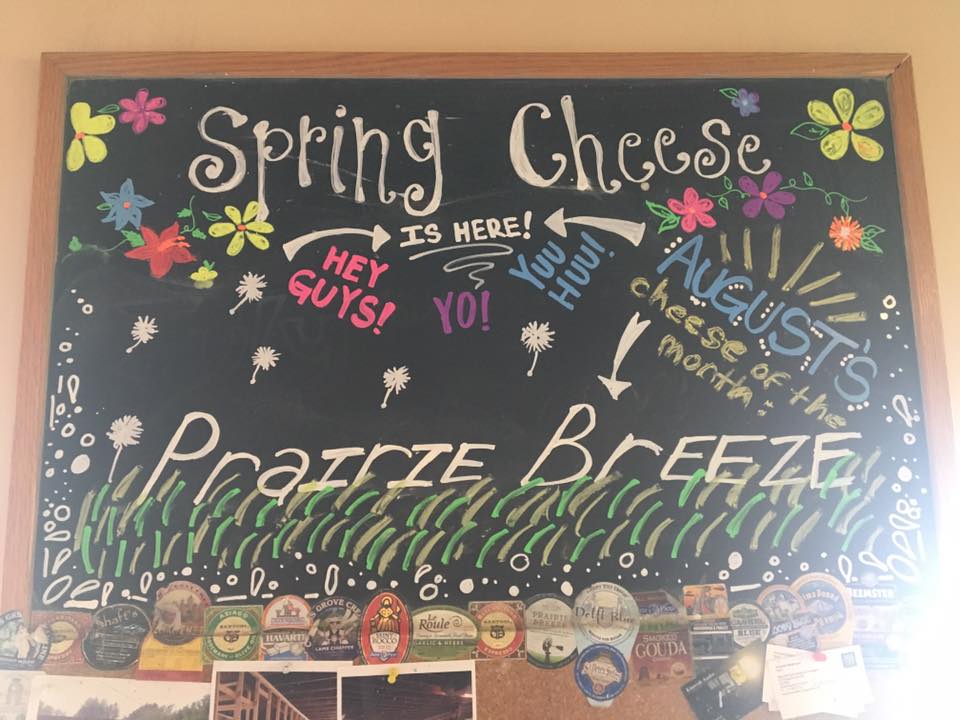 Spring Cheese
IS HERE!
HEY
GUYS!
YO!
YUU
HUU!
AUGUST'S
cheese of the
month:
Prairie BREEZE
Shaft's
ASIAGO
SARTORI
HAVARTI
GROVE
SAINT
ROCCO
La
Roule
GARLIC & HERBS
SARTORI
ESPRESSO
PRAIRIE
BREEZE
Delft Blue
SMOKED
GOUDA
BLUE
BEEMSTER